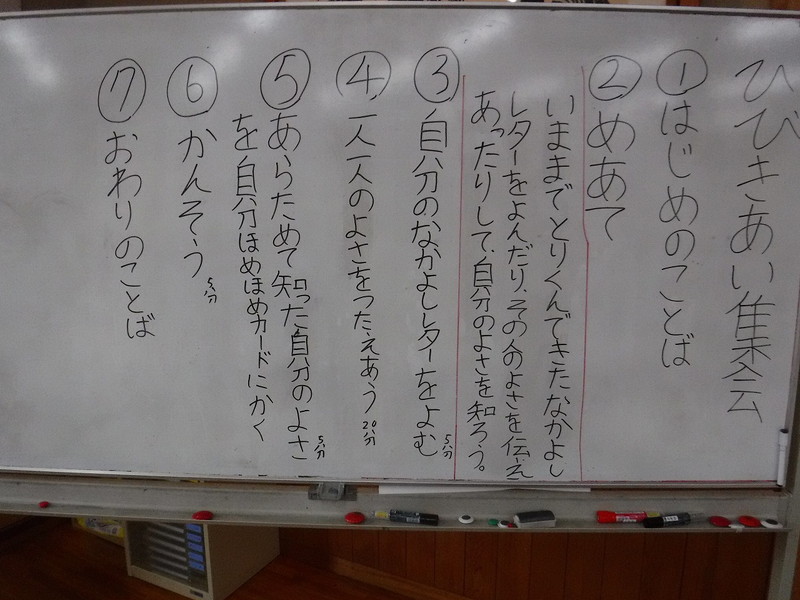 ひびきあい集会
①はじめのことば
②めあて
いままでとりくんできたなかよし
レターをよんだり、その人のよさを伝え
あったりして、自分のよさを知ろう。
③自分のなかよしレターをよむ 5分
④一人一人のよさをつたえあう 20分
⑤あらためて知った自分のよさ 5分
を自分ほめほめカードにかく
⑥かんそう 5分
⑦おわりのことば